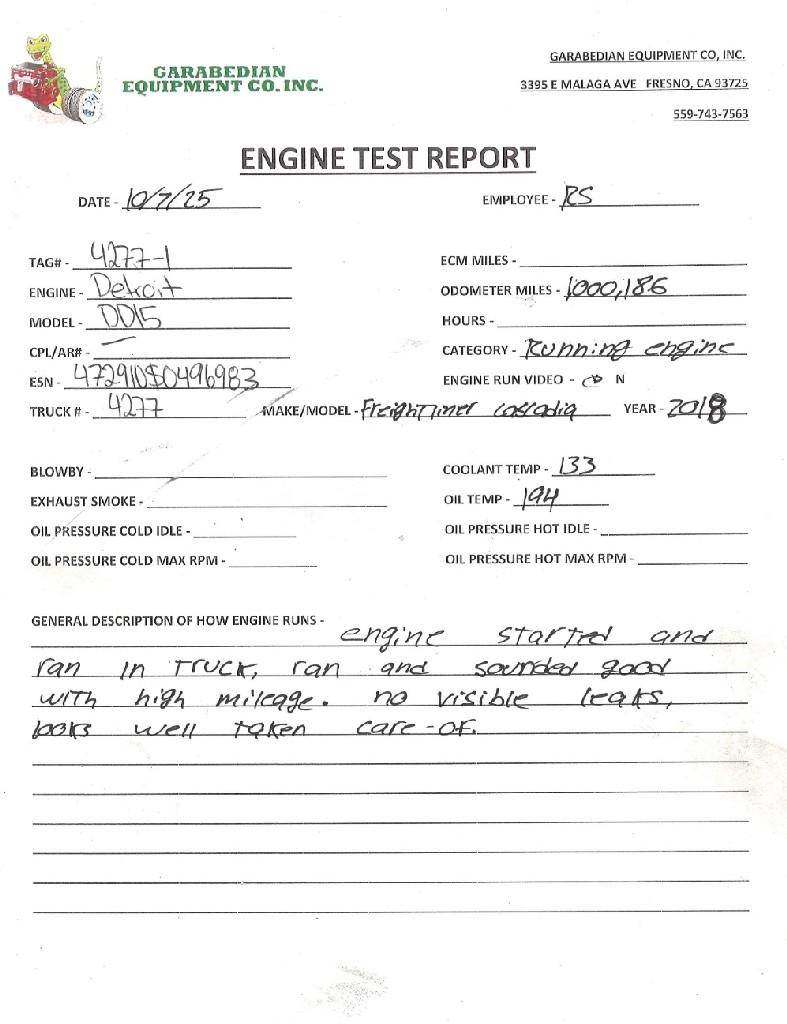 GARABEDIAN
EQUIPMENT CO. INC.
GARABEDIAN EQUIPMENT CO, INC.
3395 E MALAGA AVE FRESNO, CA 93725
559-743-7563
ENGINE TEST REPORT
DATE - 10/7/25 EMPLOYEE - RS
TAG# - 4277-1 ECM MILES -
ENGINE - Detroit ODOMETER MILES - 1000,186
MODEL - DD15 HOURS -
CPL/AR# - — CATEGORY - Running engine
ESN - 472910S0496983 ENGINE RUN VIDEO - N
TRUCK # - 4277 MAKE/MODEL - Freightliner cascadia YEAR - 2018
BLOWBY - COOLANT TEMP - 133
EXHAUST SMOKE - OIL TEMP - 194
OIL PRESSURE COLD IDLE - OIL PRESSURE HOT IDLE -
OIL PRESSURE COLD MAX RPM - OIL PRESSURE HOT MAX RPM -
GENERAL DESCRIPTION OF HOW ENGINE RUNS - engine started and
ran in truck, ran and sounded good
with high mileage. no visible leaks,
looks well taken care-of.